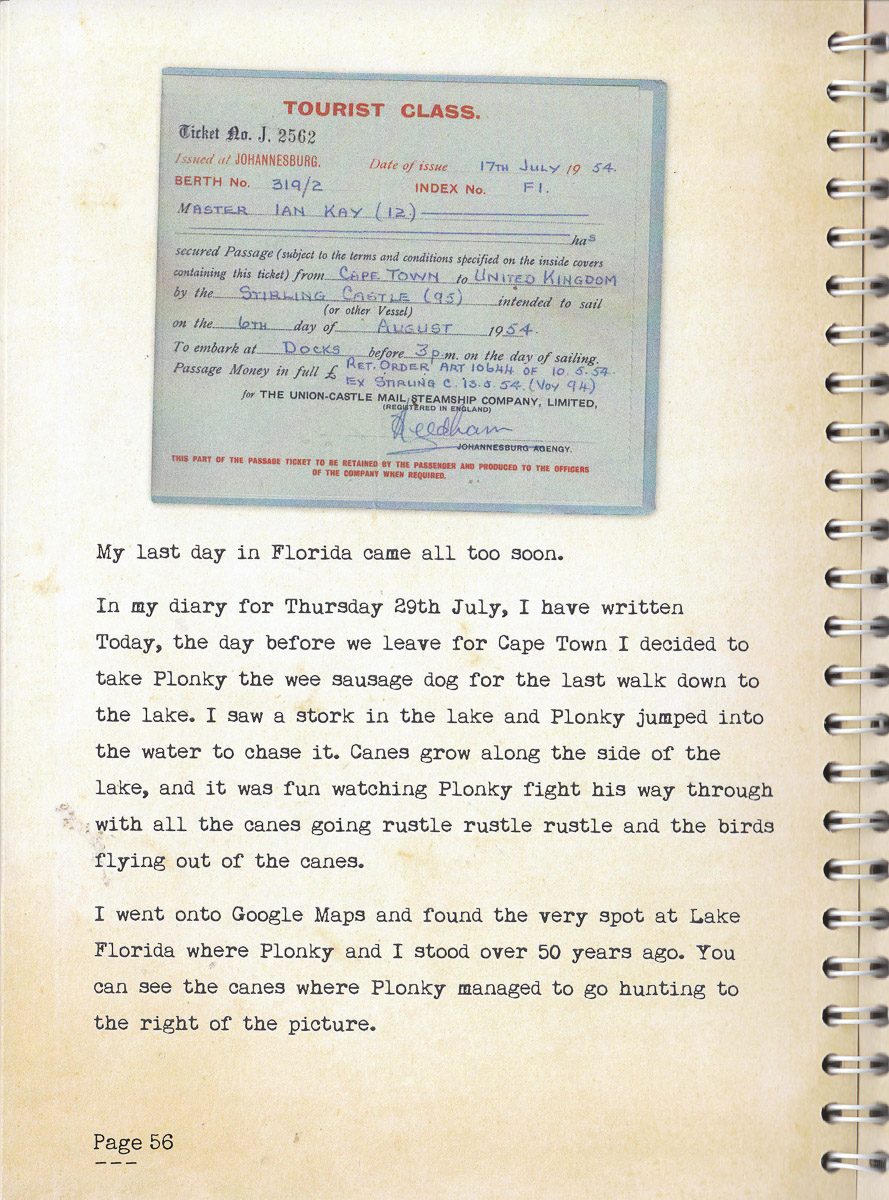 TOURIST CLASS.
Ticket No. J. 2562
Issued at JOHANNESBURG. Date of issue 17TH JULY 1954.
BERTH No. 319/2 INDEX No. F1.
MASTER IAN KAY (12)
has
secured Passage (subject to the terms and conditions specified on the inside covers
containing this ticket) from CAPE TOWN to UNITED KINGDOM
by the STIRLING CASTLE (95) intended to sail
(or other Vessel)
on the 6TH day of AUGUST 1954.
To embark at DOCKS before 3 p.m. on the day of sailing.
Passage Money in full £ RET. ORDER ART 10644 OF 10.5.54.
EX STIRLING C. 13.5.54. (VOY 94)
for THE UNION-CASTLE MAIL STEAMSHIP COMPANY, LIMITED,
(REGISTERED IN ENGLAND)
Needham
JOHANNESBURG AGENCY.
THIS PART OF THE PASSAGE TICKET TO BE RETAINED BY THE PASSENGER AND PRODUCED TO THE OFFICERS
OF THE COMPANY WHEN REQUIRED.
My last day in Florida came all too soon.
In my diary for Thursday 29th July, I have written
Today, the day before we leave for Cape Town I decided to
take Plonky the wee sausage dog for the last walk down to
the lake. I saw a stork in the lake and Plonky jumped into
the water to chase it. Canes grow along the side of the
lake, and it was fun watching Plonky fight his way through
with all the canes going rustle rustle rustle and the birds
flying out of the canes.
I went onto Google Maps and found the very spot at Lake
Florida where Plonky and I stood over 50 years ago. You
can see the canes where Plonky managed to go hunting to
the right of the picture.
Page 56